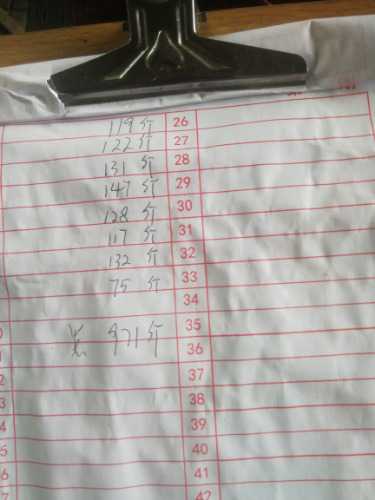 119斤 26
122斤 27
131斤 28
147斤 29
128斤 30
117斤 31
132斤 32
75斤 33
34
总 971斤 35
36
37
38
39
40
41
42